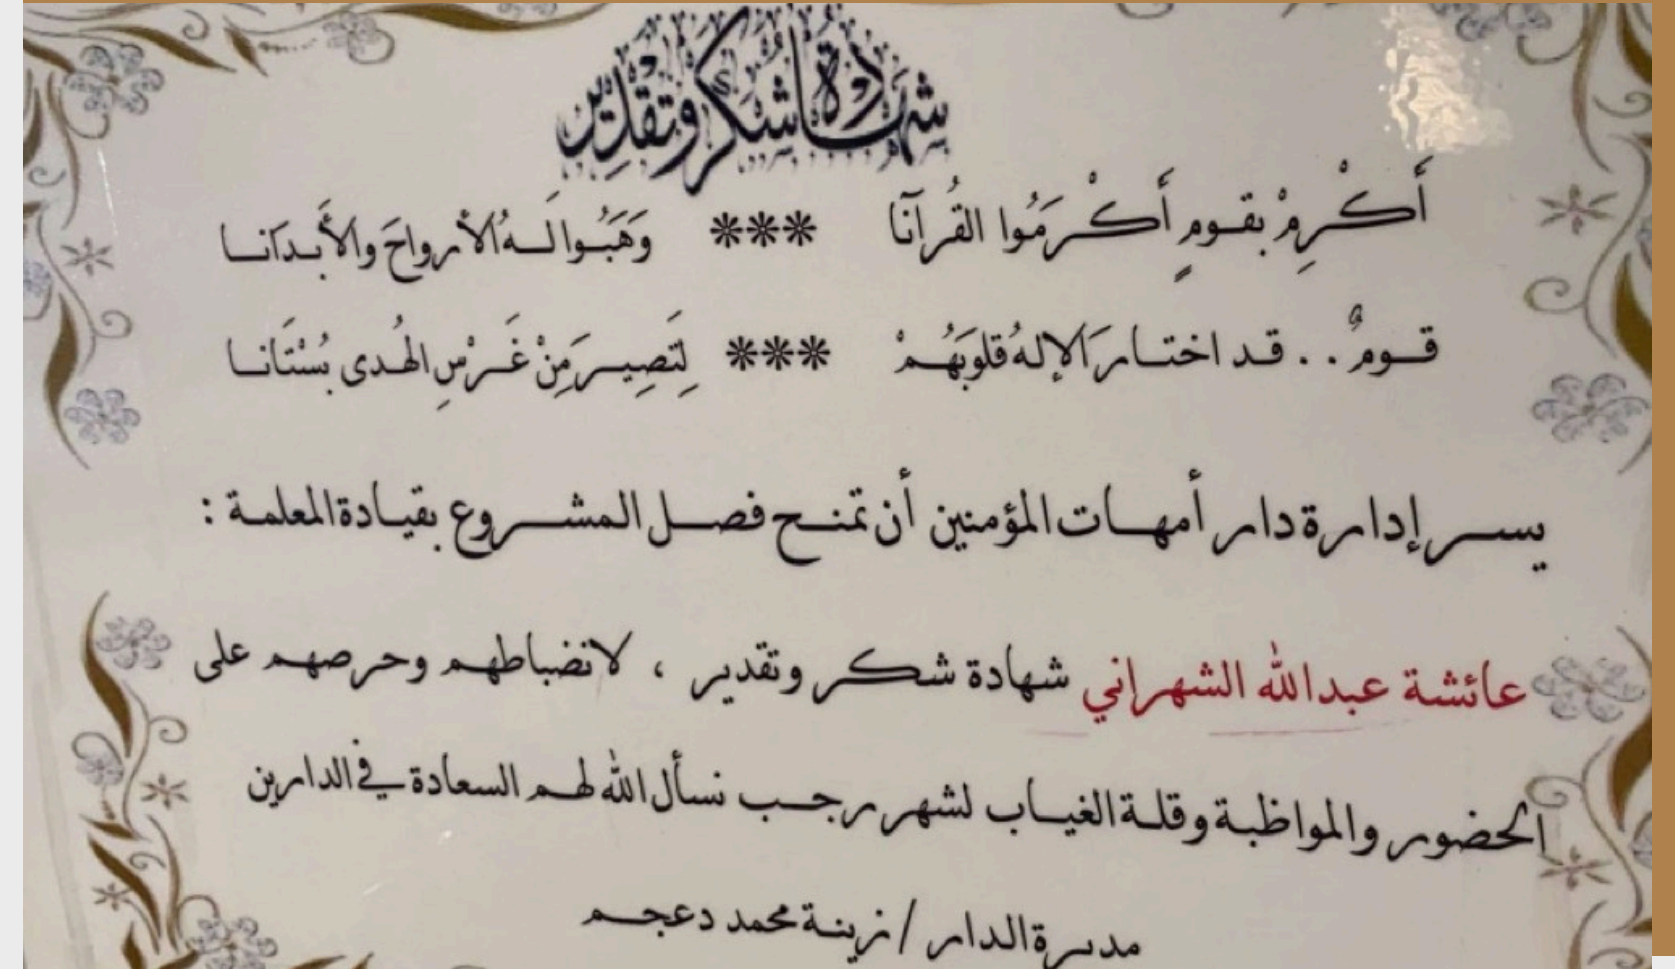 شهادة شكر وتقدير
أَكْرِمْ بقومٍ أَكْرَمُوا القُرآنَا *** وَهَبُوا لَهُ الأرواحَ والأَبدَانا
قومٌ .. قد اختارَ الإلهُ قلوبَهُمْ *** لِتَصِيرَ مِنْ غَرْسِ الهُدى بُسْتَانا
يسر إدارة دار أمهات المؤمنين أن تمنح فصل المشروع بقيادة المعلمة :
عائشة عبدالله الشهراني شهادة شكر وتقدير ، لانضباطهم وحرصهم على
الحضور والمواظبة وقلة الغياب لشهر رجب نسأل الله لهم السعادة في الدارين
مديرة الدار / زينة محمد دعجم